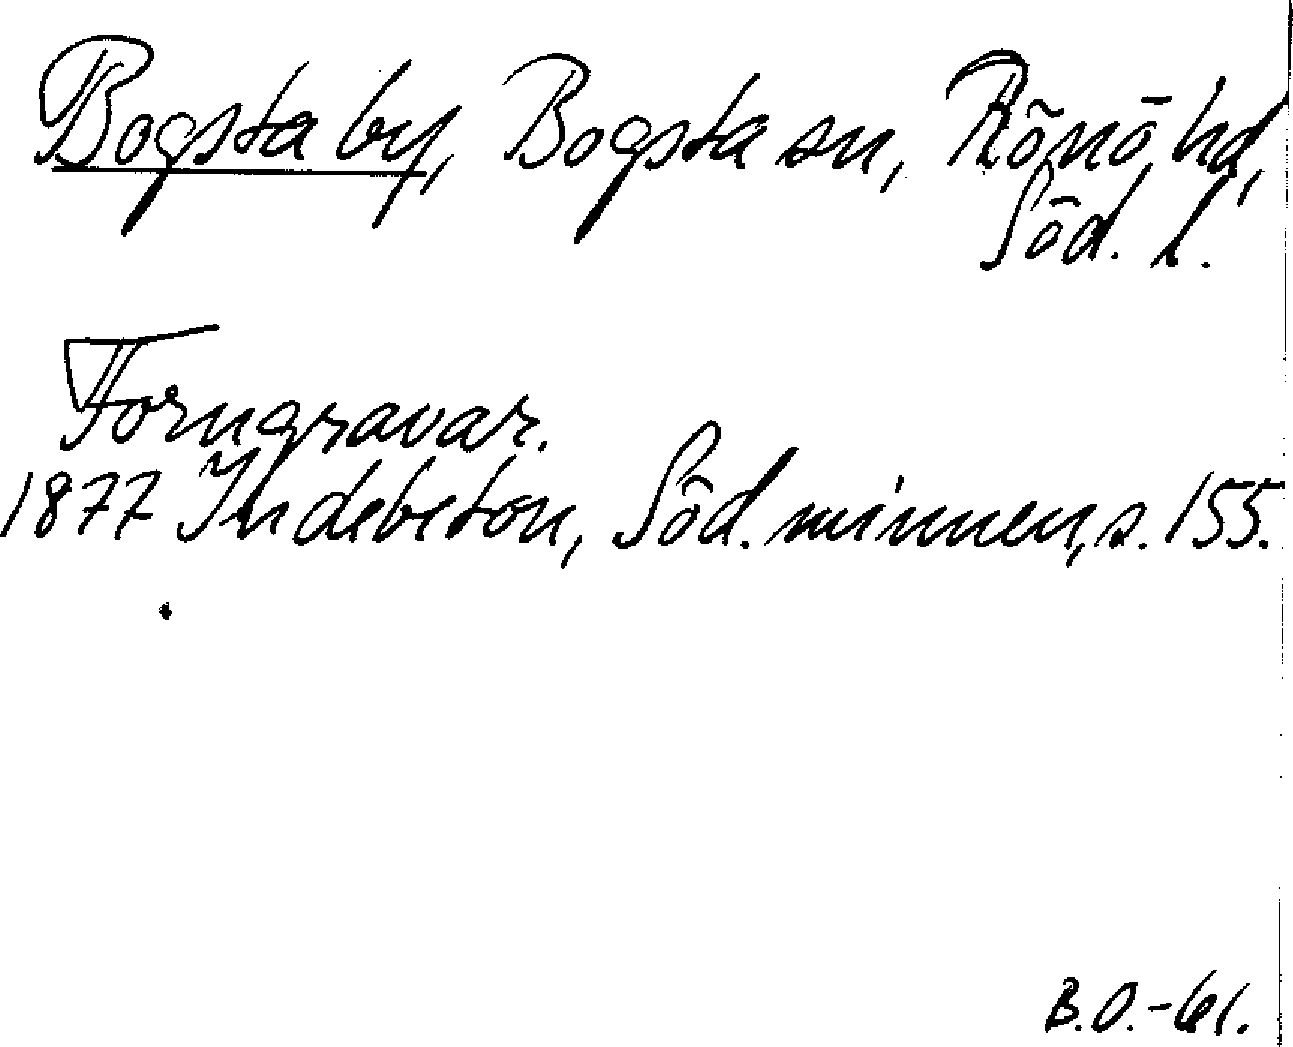 Bogsta by, Bogsta sn, Rönö hd,
Söd. l.
Forngravar.
1877 Indebetou, Söd. minnen, s. 155.
B.O.-61.